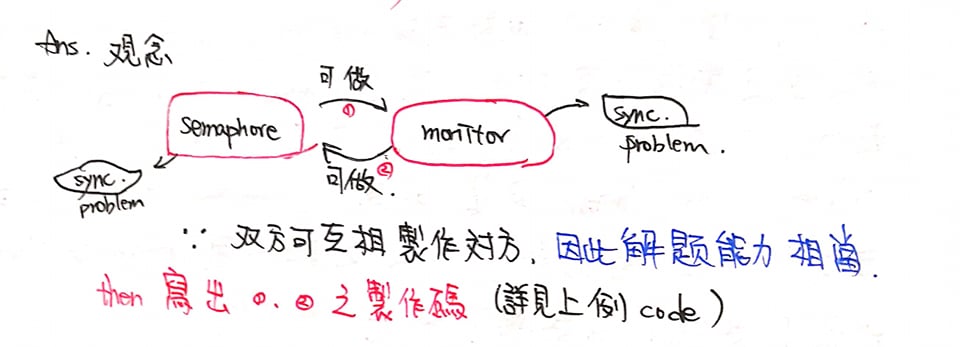 Ans. 观念
可做
①
semaphore
monitor
sync.
problem.
②
可做.
sync.
problem
∵ 双方可互相製作对方, 因此解题能力相當.
then 寫出 ①. ② 之製作碼 (詳見上例 code)